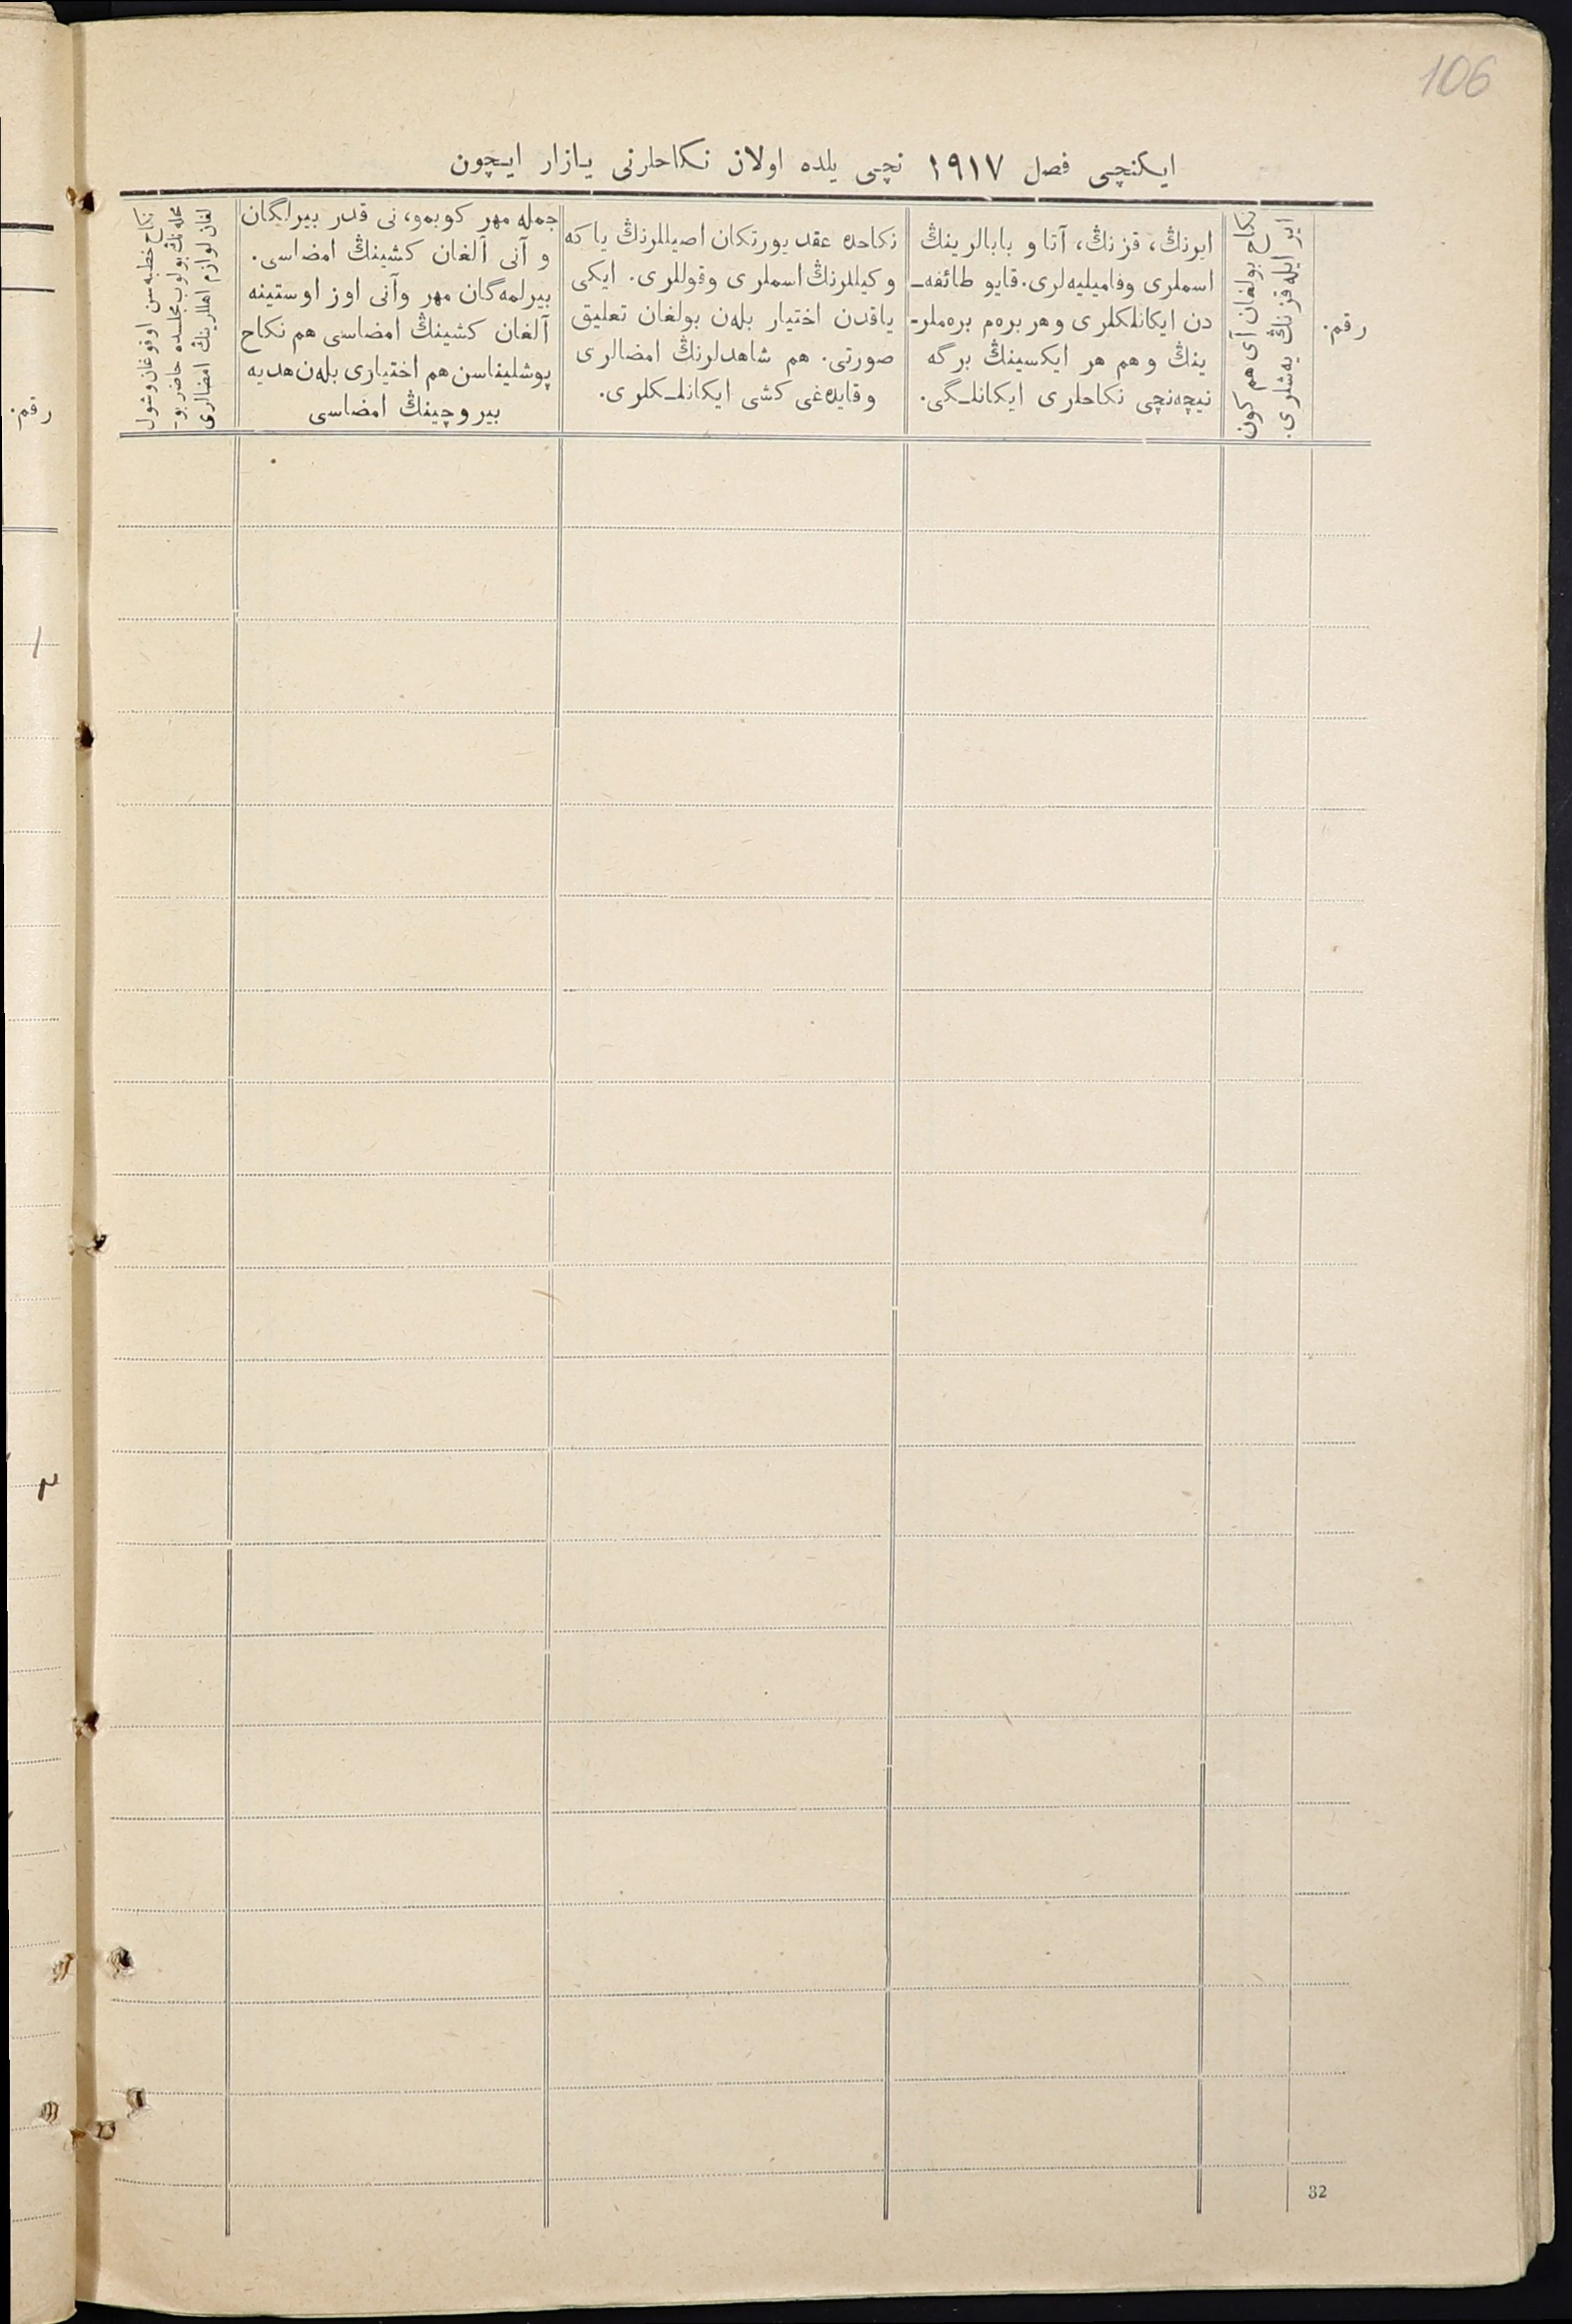 106
ایکنچی فصل ١٩١٧ نچی یلده اولان نکاحلرنی یازار ایچون
رقم.
نکاح بولغان آی هم کون
ایر ایله قزنڭ یه‌شلری.
ایرنڭ، قزنڭ، آتا و بابالرینڭ
اسملری وفامیلیه‌لری. قایو طائفه‌ـ
دن ایکانلکلری وهر بره‌م بره‌ملر-
ینڭ وهم هر ایکسینڭ برگه
نیچه‌نچی نکاحلری ایکانلـگی.
نکاحده عقد یورتکان اصیللرنڭ یا که
وکیللرنڭ اسملری وقوللری. ایکی
یاقدن اختیار بله‌ن بولغان تعلیق
صورتی. هم شاهدلرنڭ امضالری
وقایده‌غی کشی ایکانلـکلری.
جمله مهر کوبمو، نی قدر بیرلگان
و آنی آلغان کشینڭ امضاسی.
بیرلمه‌گان مهر وآنی اوز اوستینه
آلغان کشینڭ امضاسی هم نکاح
پوشلیناسن هم اختیاری بله‌ن هدیه
بیروچینڭ امضاسی
نکاح خطبه‌سن اوقوغان وشول
محله‌نڭ بولوب مجلسده حاضر بو-
لغان لوازم اهللرینڭ امضالری
32
رقم.
١
٢